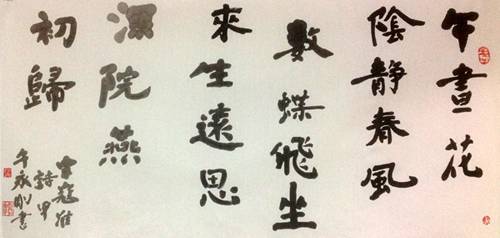 午晝花
陰靜春風
數蝶飛坐
來生遠思
深院燕
初歸
寇准
詩甲
午永刚書